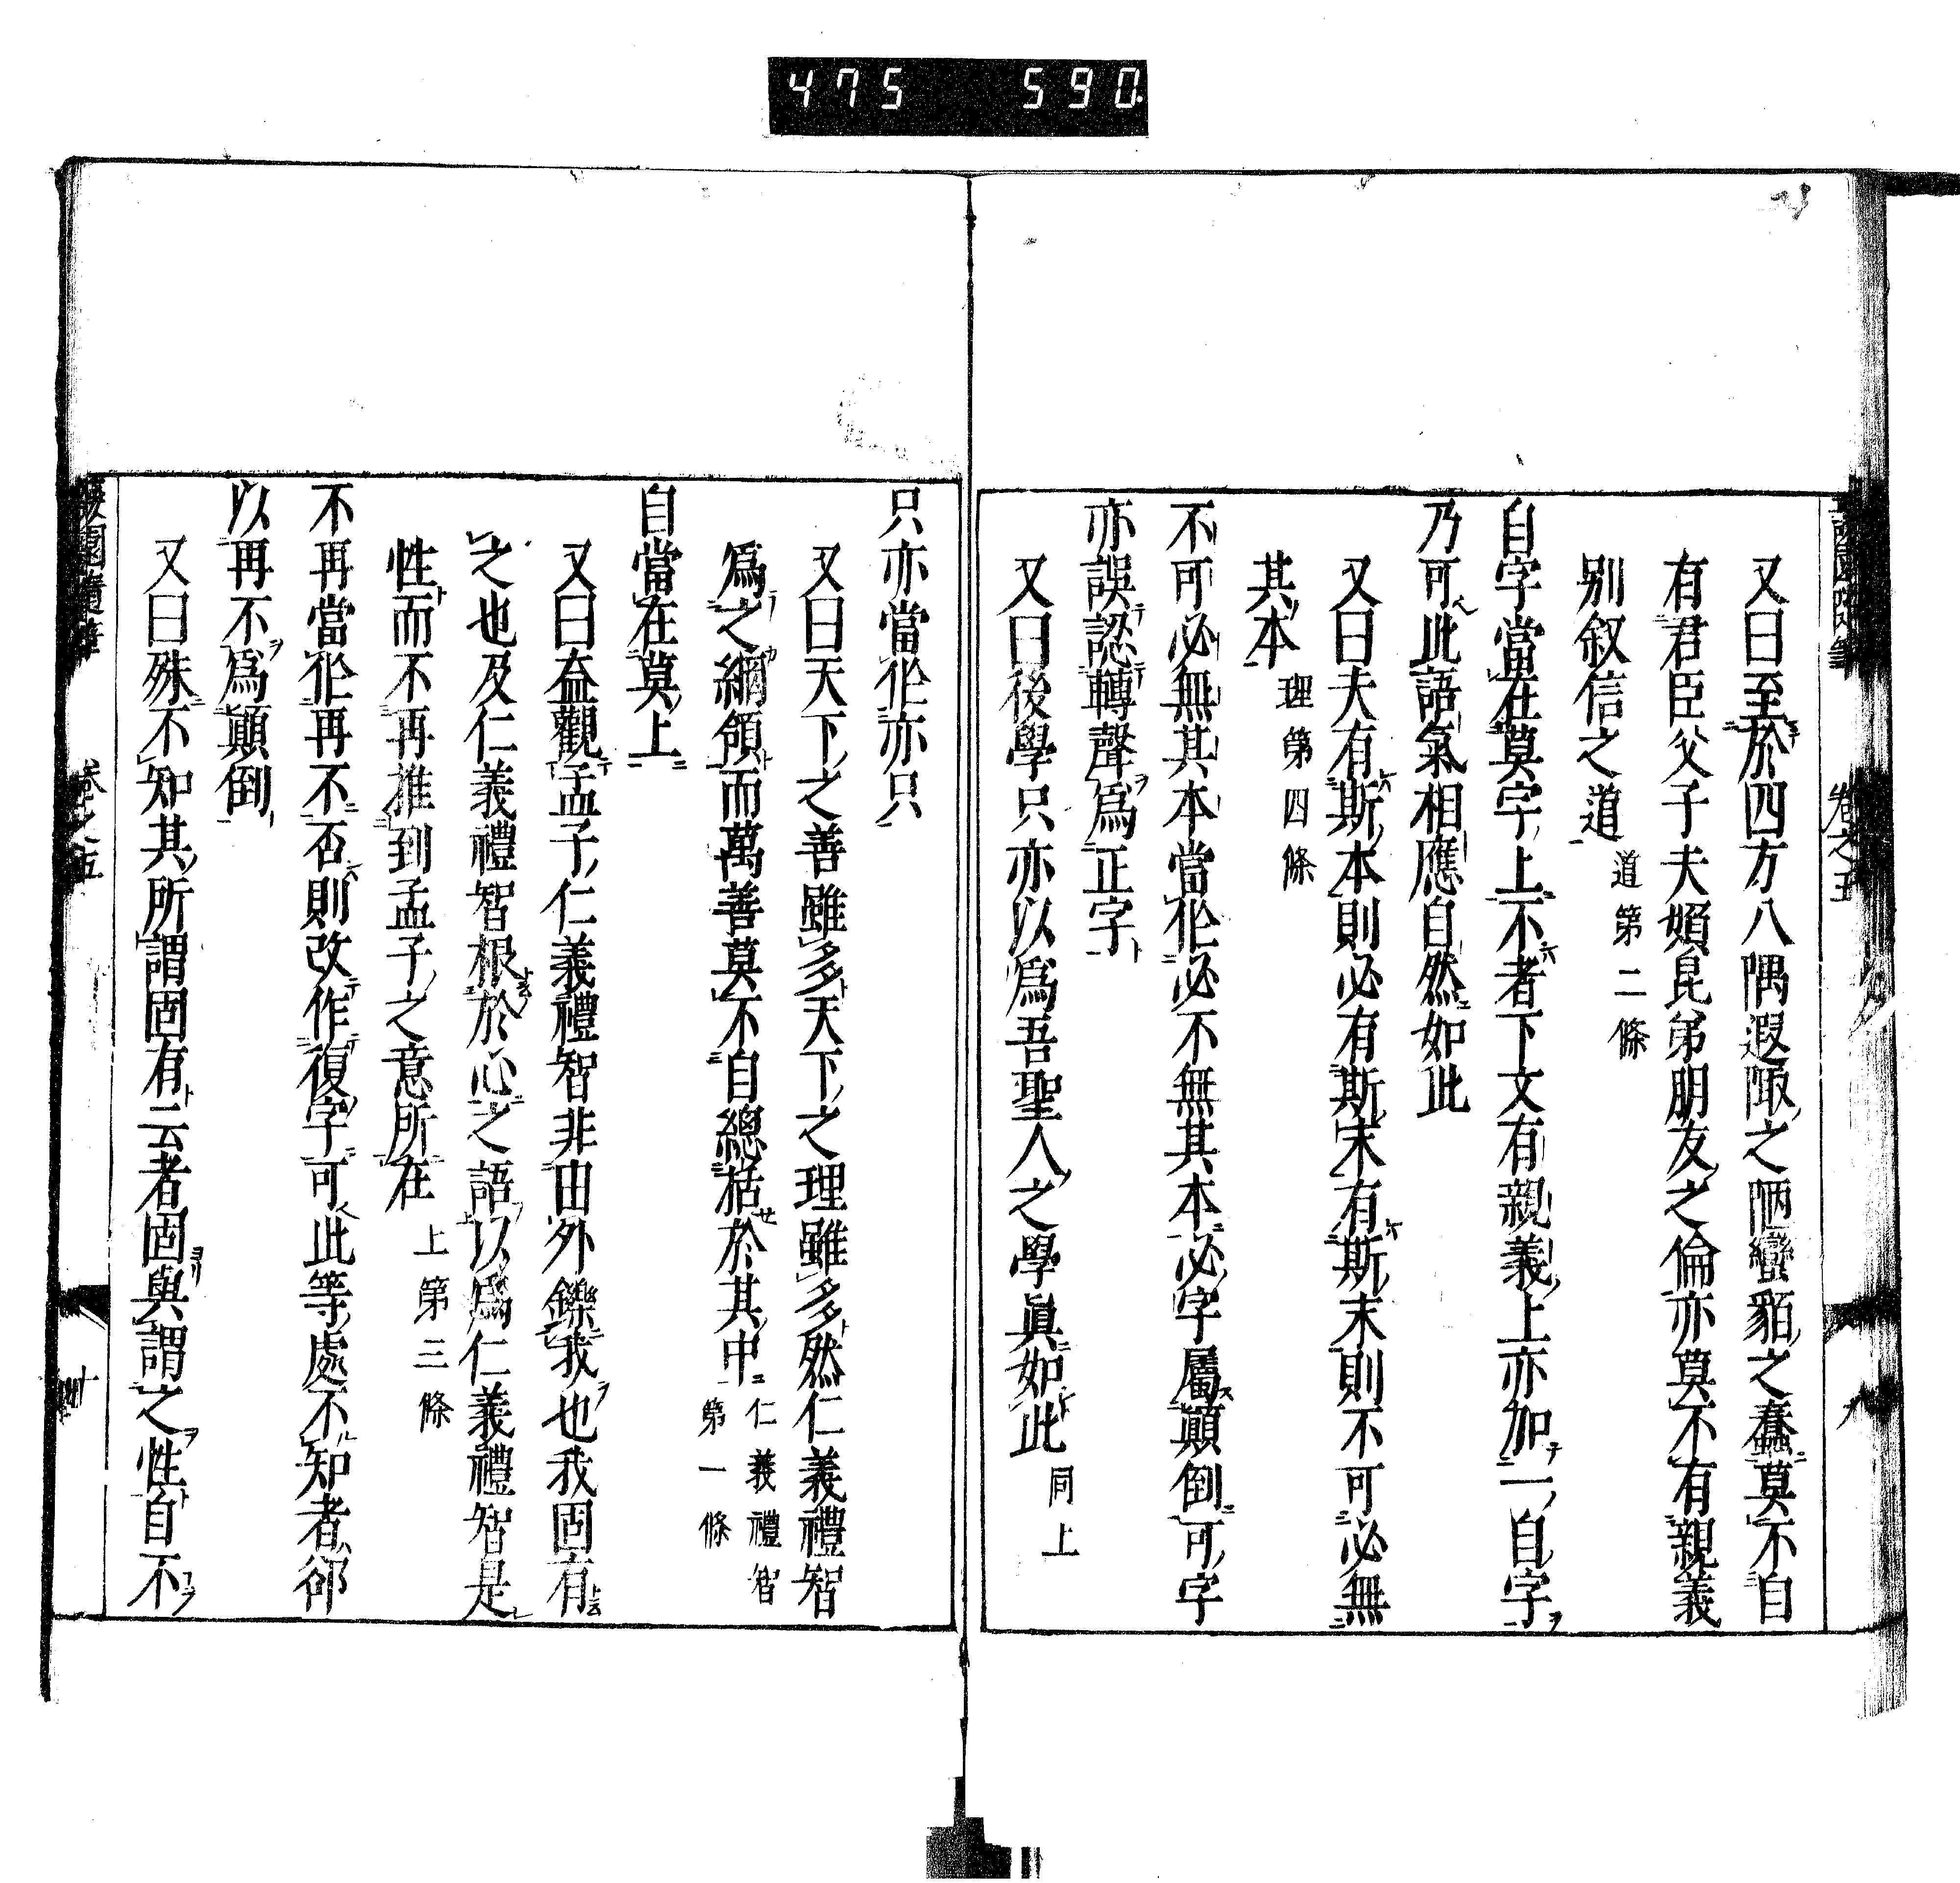 475 590
又曰至於四方八隅遐陬之陋蠻貊之蠢莫不自
有君臣父子夫婦昆弟朋友之倫亦莫不有親義
別叙信之道 道第二條
自字當在莫字上不者下文有親義上亦加一自字
乃可此語氣相應自然如此
又曰夫有斯本則必有斯末有斯末則不可必無
其本 理第四條
不可必無其本當作必不無其本必字屬顛倒可字
亦誤認轉聲爲正字
又曰後學只亦以爲吾聖人之學眞如此 同上
只亦當作亦只
又曰天下之善雖多天下之理雖多然仁義禮智
爲之綱領而萬善莫不自總括於其中 仁義禮智第一條
自當在莫上
又曰益觀孟子仁義禮智非由外鑠我也我固有
之也及仁義禮智根於心之語以爲仁義禮智是
性而不再推到孟子之意所在 上第三條
不再當作再不否則改作復字可此等處不知者郤
以再不爲顛倒
又曰殊不知其所謂固有云者固與謂之性自不
蘐園隨筆 卷之五